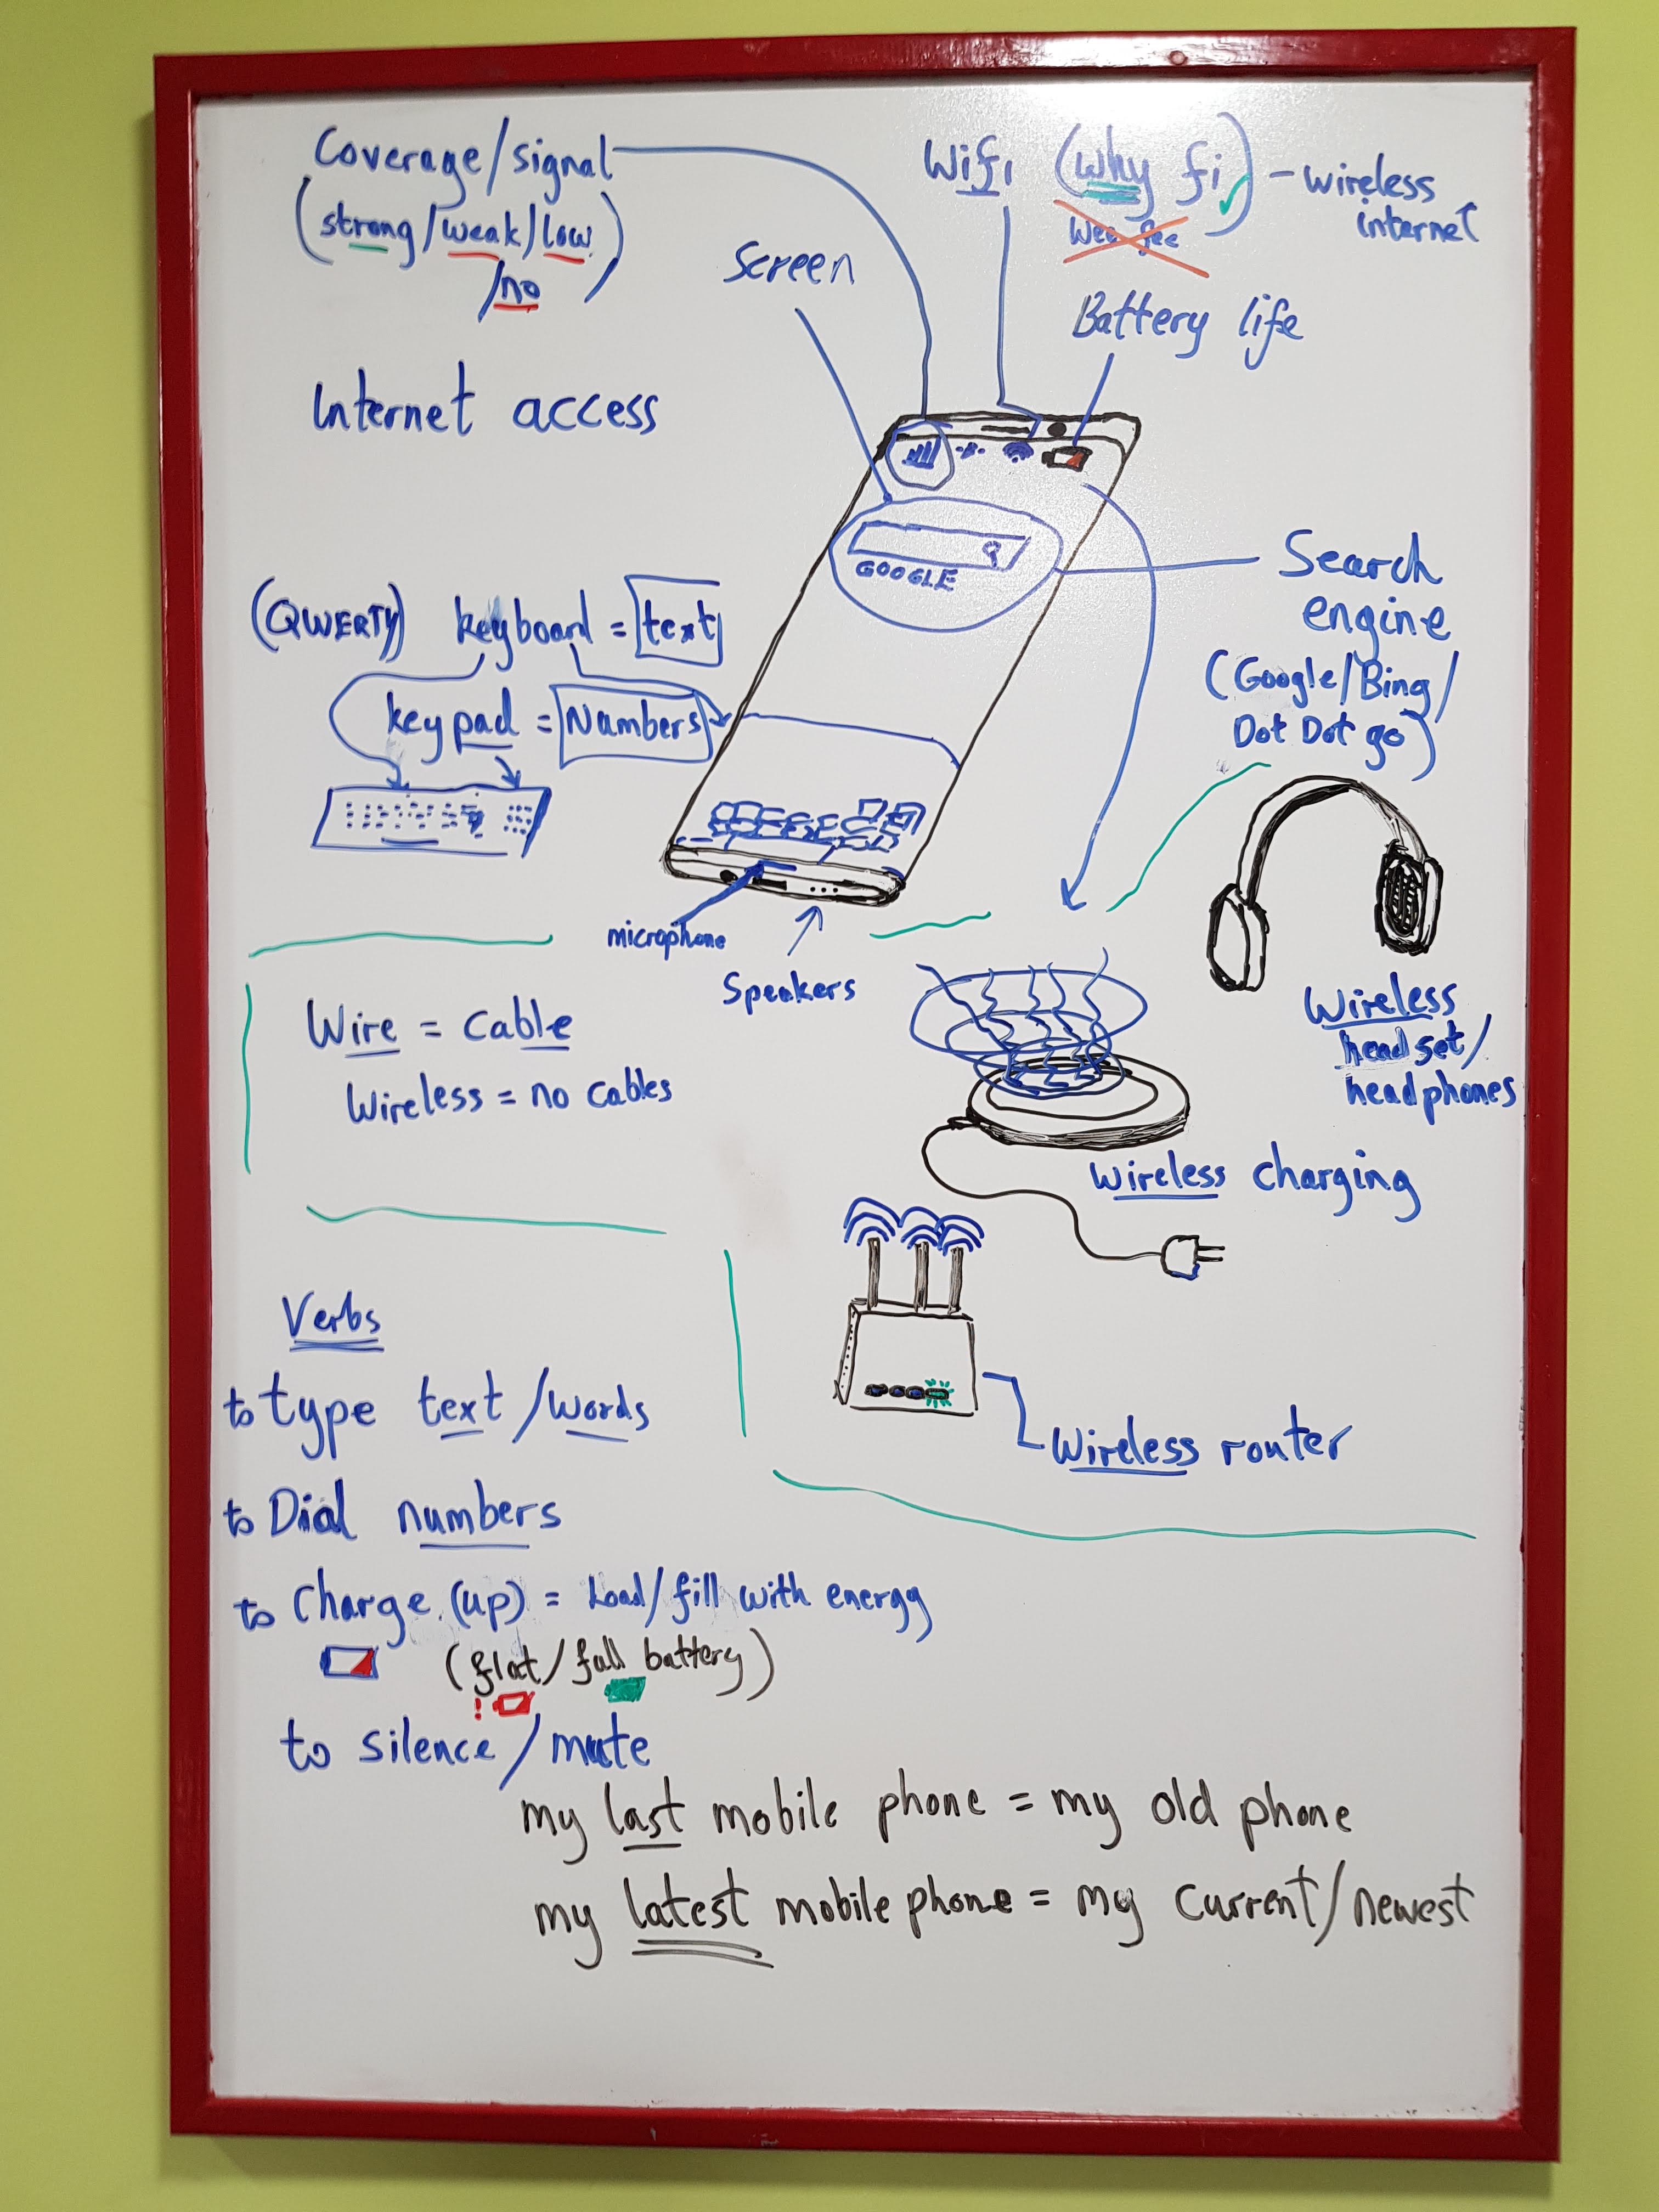 Coverage/signal
(strong/weak/low
/no)
Wifi (why fi) - wireless
internet
Wee fee
Screen
Battery life
Internet access
GOOGLE
Search
engine
(Google/Bing/
Dot Dot go)
(QWERTY) keyboard = text
keypad = Numbers
microphone
Speakers
Wireless
headset/
headphones
Wire = cable
Wireless = no cables
Wireless charging
Wireless router
Verbs
to type text/words
to Dial numbers
to Charge (up) = Load/fill with energy
(flat/full battery)
!
to silence/mute
my last mobile phone = my old phone
my latest mobile phone = my current/newest